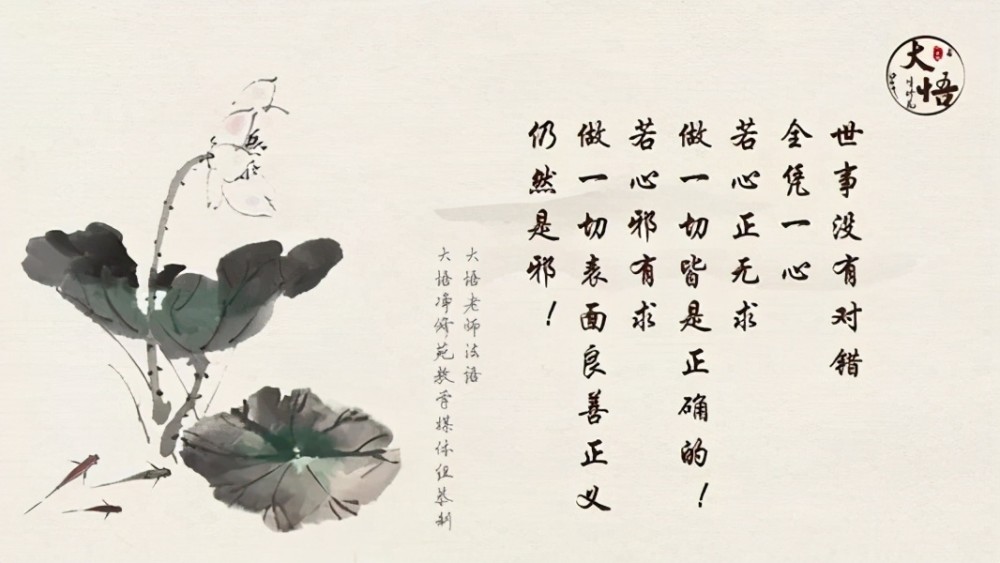 世事没有对错
全凭一心
若心正无求
做一切皆是正确的！
若心邪有求
做一切表面良善正义
仍然是邪！
大悟老师法语
大悟净修苑教学媒体组恭制
大悟